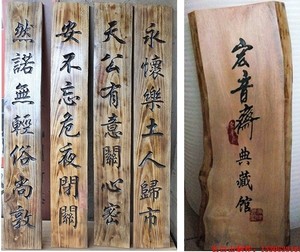 永懷樂土人歸市
天公有意關心密
安不忘危夜閉關
然諾無輕俗尚敦
宏音齋典藏館